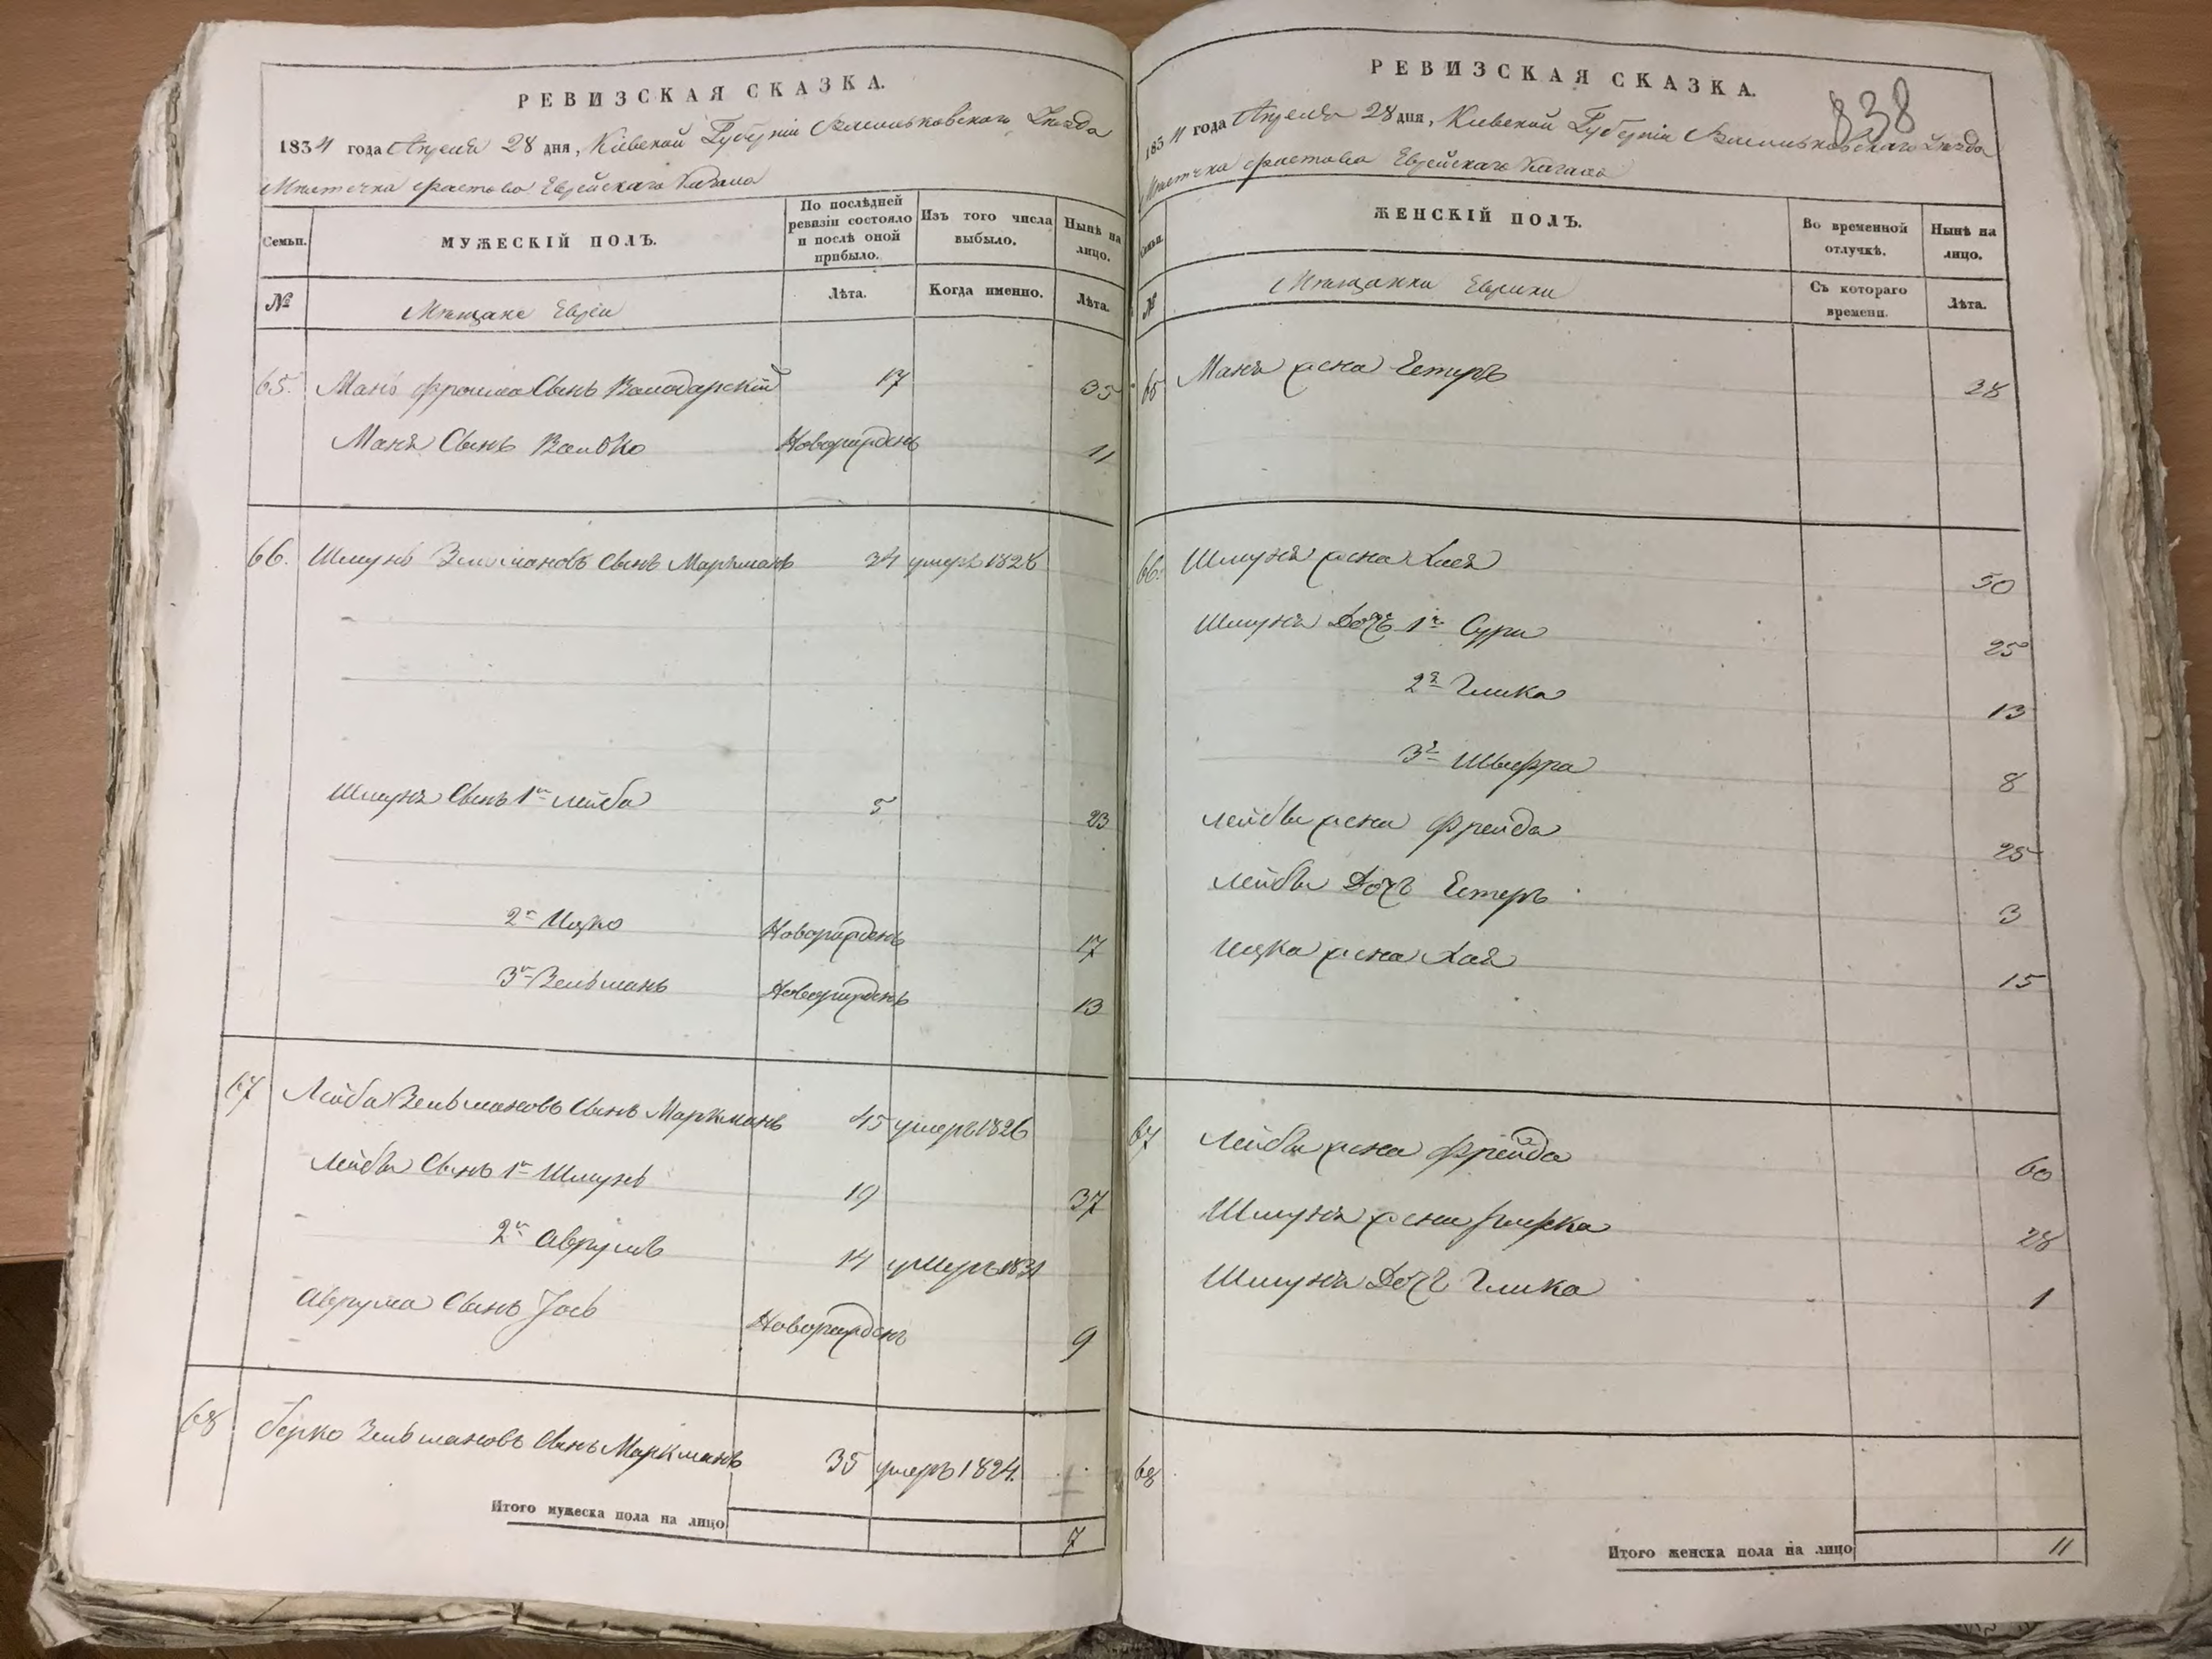 РЕВИЗСКАЯ СКАЗКА.
1834 года Апреля 28 дня, Кіевской Губерніи Васильковского Уезда
Местечка Фастова Еврейскаго Кагала
Семьи.
МУЖЕСКІЙ ПОЛЪ.
По послѣдней ревизіи состояло и послѣ оной прибыло.
Изъ того числа выбыло.
Нынѣ на лицо.
№
Мещане Евреи
Лѣта.
Когда именно.
Лѣта.
65. Мань Фроима Сынъ Володарскій 17 35
Маня Сынъ Волько Новорожденъ 11
66. Шмунь Зельмановъ Сынъ Маркманъ 34 умеръ 1828
Шмуня Сынъ 1й Лейба 5 23
2й Ицко Новорожденъ 17
3й Зельманъ Новорожденъ 13
67 Лейба Зельмановъ Сынъ Маркманъ 45 умеръ 1826
Лейбы Сынъ 1й Шмунь 19 37
2й Аврумъ 14 умеръ 1831
Аврума Сынъ Іось Новорожденъ 9
68 Берко Зельмановъ Сынъ Маркманъ 35 умеръ 1824.
Итого мужеска пола на лицо 7
838
РЕВИЗСКАЯ СКАЗКА.
1834 года Апреля 28 дня, Кіевской Губерніи Васильковскаго Уезда
Местечка Фастова Еврейскаго Кагала
Семьи.
ЖЕНСКІЙ ПОЛЪ.
Во временной отлучкѣ.
Нынѣ на лицо.
№
Мещанки Еврики
Съ котораго времени.
Лѣта.
65 Маня жена Естеръ 28
66. Шмуня жена Хая 50
Шмуня Дочь 1я Сура 25
2я Гликa 13
3я Шифра 8
Лейбы жена Фрейда 25
Лейбы Дочь Естеръ 3
Ицка жена Хая 15
67 Лейбы жена Фрейда 60
Шмуня жена 28
Шмуня Дочь Глика 1
68
Итого женска пола на лицо 11